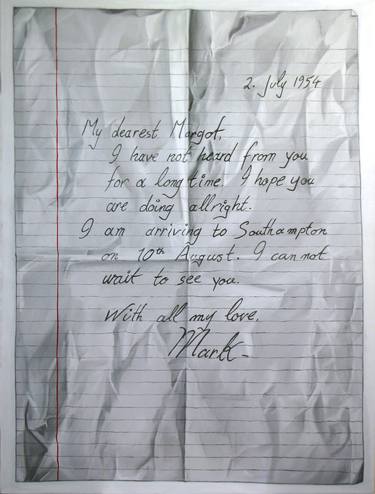 2. July 1954
My dearest Margot,
I have not heard from you
for a long time. I hope you
are doing allright.
I am arriving to Southampton
on 10th August. I can not
wait to see you.
With all my love.
Mark